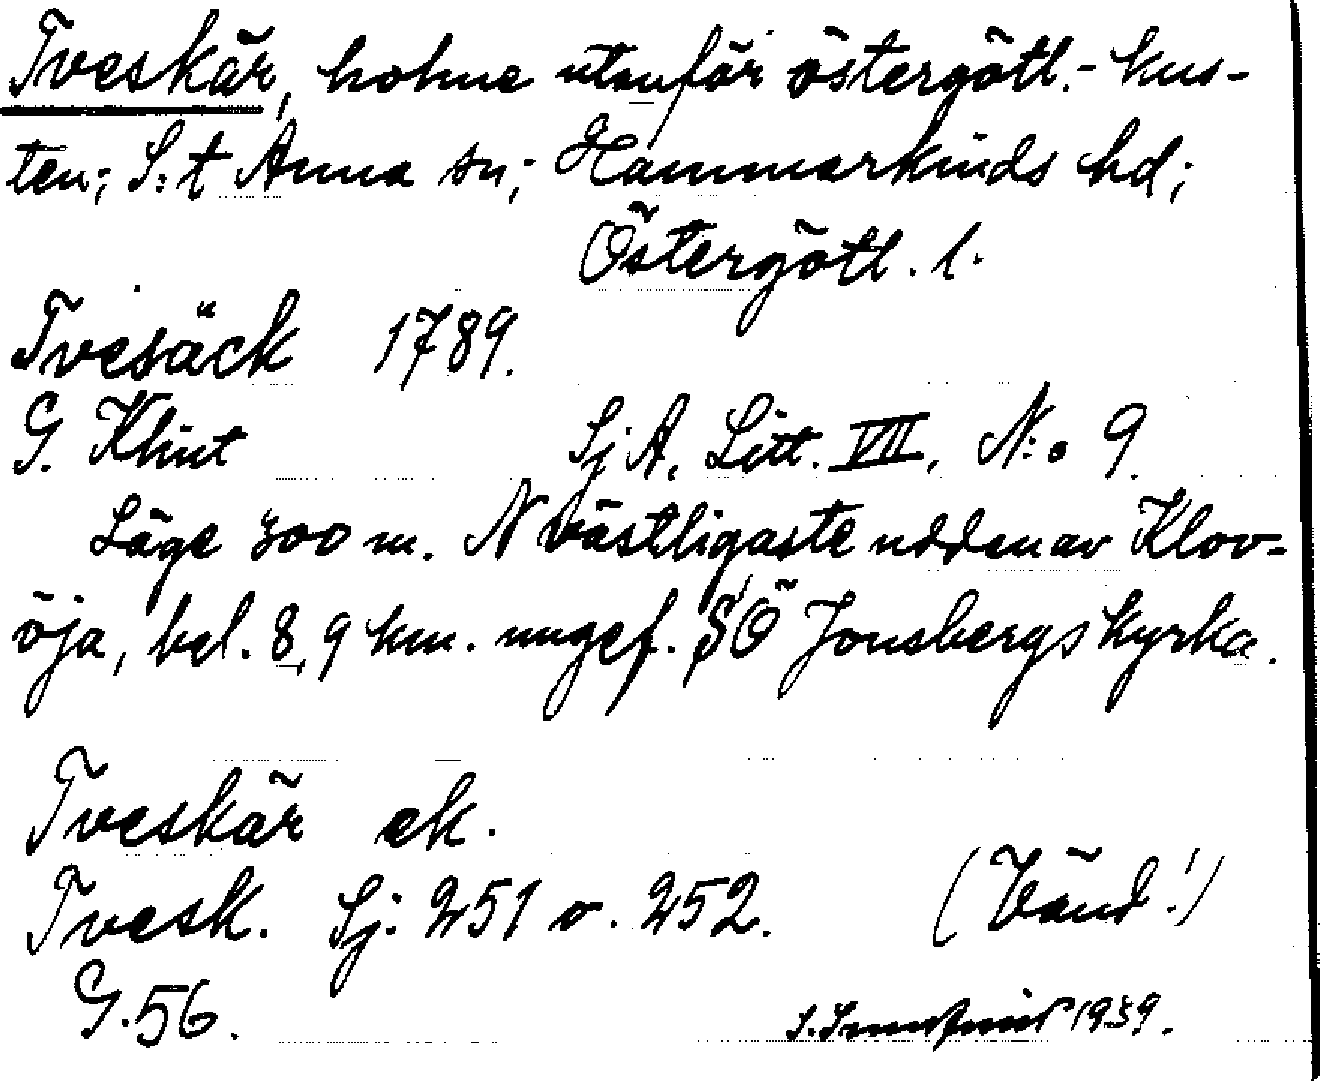 Tveskär, holme utanför östergötl.- kus-
ten; S:t Anna sn; Hammarkinds hd;
Östergötl. l.
Tvesäck 1789.
G. Klint Sj A. Litt. VIII, N:o 9.
Läge 300 m. N västligaste udden av Klov-
öja, bel. 8,9 km. ungef. SÖ Jonsbergs kyrka.
Tveskär ek.
Tvesk. Sj. 251 o. 252. (Vänd!)
G. 56.
1939.